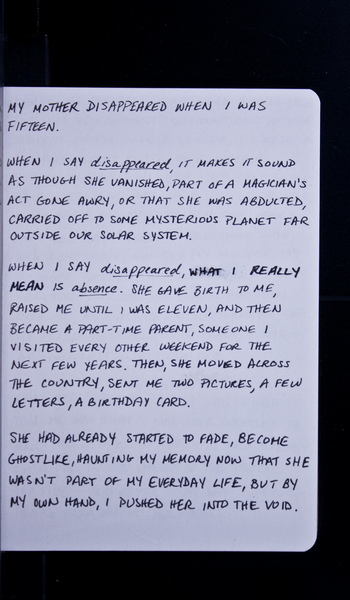 MY MOTHER DISAPPEARED WHEN I WAS
FIFTEEN.
WHEN I SAY disappeared, IT MAKES IT SOUND
AS THOUGH SHE VANISHED, PART OF A MAGICIAN'S
ACT GONE AWRY, OR THAT SHE WAS ABDUCTED,
CARRIED OFF TO SOME MYSTERIOUS PLANET FAR
OUTSIDE OUR SOLAR SYSTEM.
WHEN I SAY disappeared, WHAT I REALLY
MEAN IS absence. SHE GAVE BIRTH TO ME,
RAISED ME UNTIL I WAS ELEVEN, AND THEN
BECAME A PART-TIME PARENT, SOMEONE I
VISITED EVERY OTHER WEEKEND FOR THE
NEXT FEW YEARS. THEN, SHE MOVED ACROSS
THE COUNTRY, SENT ME TWO PICTURES, A FEW
LETTERS, A BIRTHDAY CARD.
SHE HAD ALREADY STARTED TO FADE, BECOME
GHOSTLIKE, HAUNTING MY MEMORY NOW THAT SHE
WASN'T PART OF MY EVERYDAY LIFE, BUT BY
MY OWN HAND, I PUSHED HER INTO THE VOID.